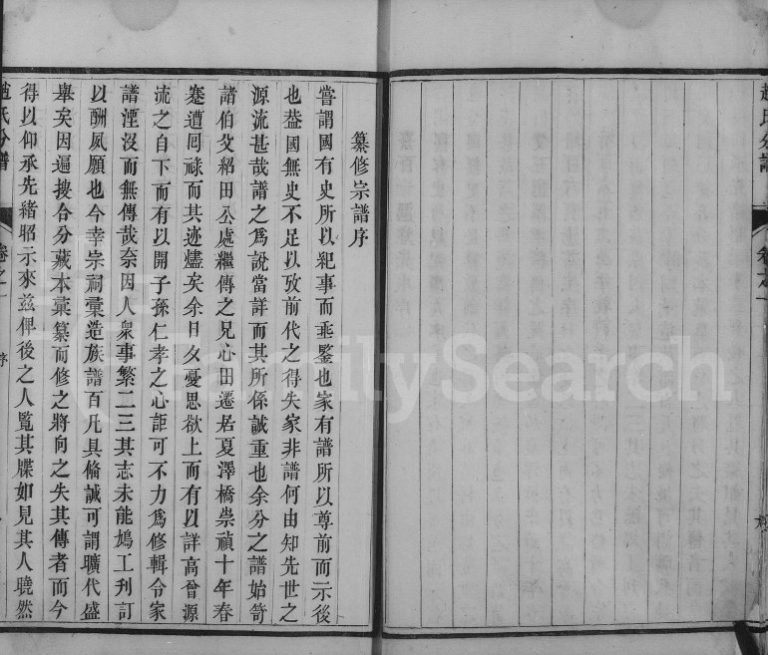 趙氏分譜
卷之一
纂修宗譜序
嘗謂國有史所以紀事而垂鑒也家有譜所以尊前而示後
也葢國無史不足以攷前代之得失家非譜何由知先世之
源流甚哉譜之爲說當詳而其所係誠重也余分之譜始苛
諸伯攴紹田公處繼傳之兄心田遷居夏澤橋崇禎十年春
蹇遭囘祿而其迹燼矣余日夂憂思欲上而有以詳高曾源
流之自下而有以開子孫仁孝之心詎可不力爲修輯令家
譜湮沒而無傳哉奈因人衆事繁二三其志未能鳩工刋訂
以酬夙願也今幸宗祠彙造族譜百凡具俻誠可謂曠代盛
舉矣因遍搜合分藏本彙纂而修之將向之失其傳者而今
得以仰承先緒昭示來兹俾後之人覧其牒如見其人曉然
趙氏分譜
卷之一
序
FamilySearch